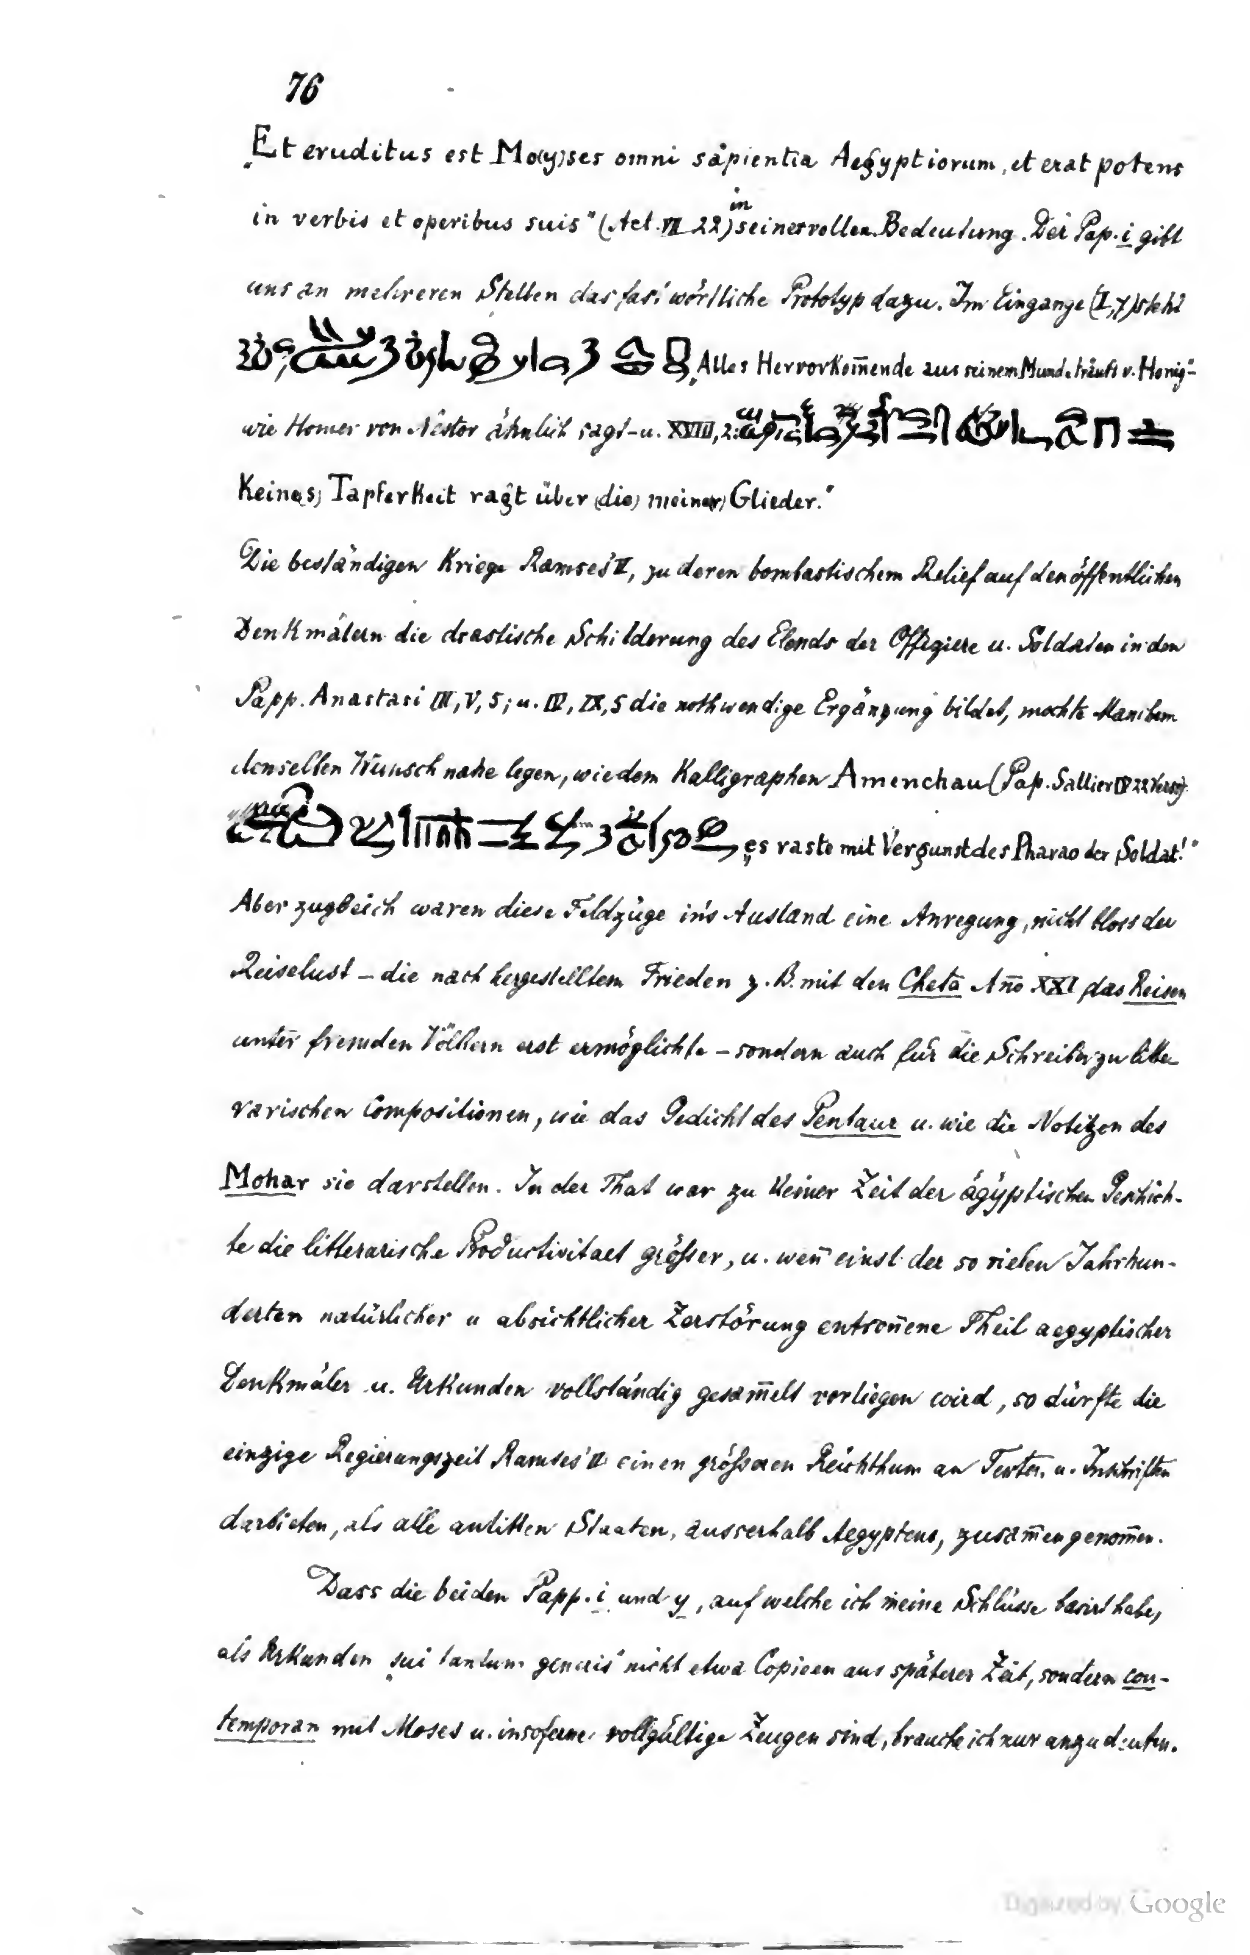 76
„Et eruditus est Mo(y)ses omni sapientia Aegyptiorum, et erat potens
in verbis et operibus suis" (Act. VII 22) in seiner vollen Bedeutung. Der Pap. i gibt
uns an mehreren Stellen das fast wörtliche Prototyp dazu. Im Eingange (I, 7) steht
„Alles Hervorkom̅ende aus seinem Munde träuft v. Honig"-
wie Homer von Nestor ähnlich sagt - u. XVIII, 2:
Keine(s) Tapferkeit ragt über (die) meine(r) Glieder."
Die beständigen Kriege Ramses' II, zu deren bombastischem Relief auf den öffentlichen
Denkmälern die drastische Schilderung des Elends der Offiziere u. Soldaten in den
Papp. Anastasi III, V, 5; u. IV, IX, 5 die nothwendige Ergänzung bildet, mochte Manchem
denselben Wunsch nahe legen, wie dem Kalligraphen Amenchau (Pap. Sallier IV 22 Verso).
„es raste mit Vergunst des Pharao der Soldat!"
Aber zugleich waren diese Feldzüge in's Ausland eine Anregung, nicht bloss der
Reiselust – die nach hergestelltem Frieden z. B. mit den Cheta Añ̅o XXI das Reisen
unter fremden Völkern erst ermöglichte – sondern auch für die Schreiber zu litte-
rarischen Compositionen, wie das Gedicht des Pentaur u. wie die Notizen des
Mohar sie darstellen. In der That war zu keiner Zeit der ägyptischen Geschich-
te die litterarische Productivitaet größer, u. wen̅ einst der so vielen Jahrhun-
derten natürlicher u absichtlicher Zerstörung entron̅ene Theil aegyptischer
Denkmäler u. Urkunden vollständig gesam̅elt vorliegen wird, so dürfte die
einzige Regierungszeit Ramses' II einen größeren Reichthum an Texten u. Inschriften
darbieten, als alle antiken Staaten, ausserhalb Aegyptens, zusam̅engenom̅en.
Dass die beiden Papp. i und y, auf welche ich meine Schlüsse basirt habe,
als Urkunden „sui tantum generis" nicht etwa Copieen aus späterer Zeit, sondern con-
temporan mit Moses u. insoferne vollgültige Zeugen sind, brauche ich nur anzudeuten.
Digitized by Google